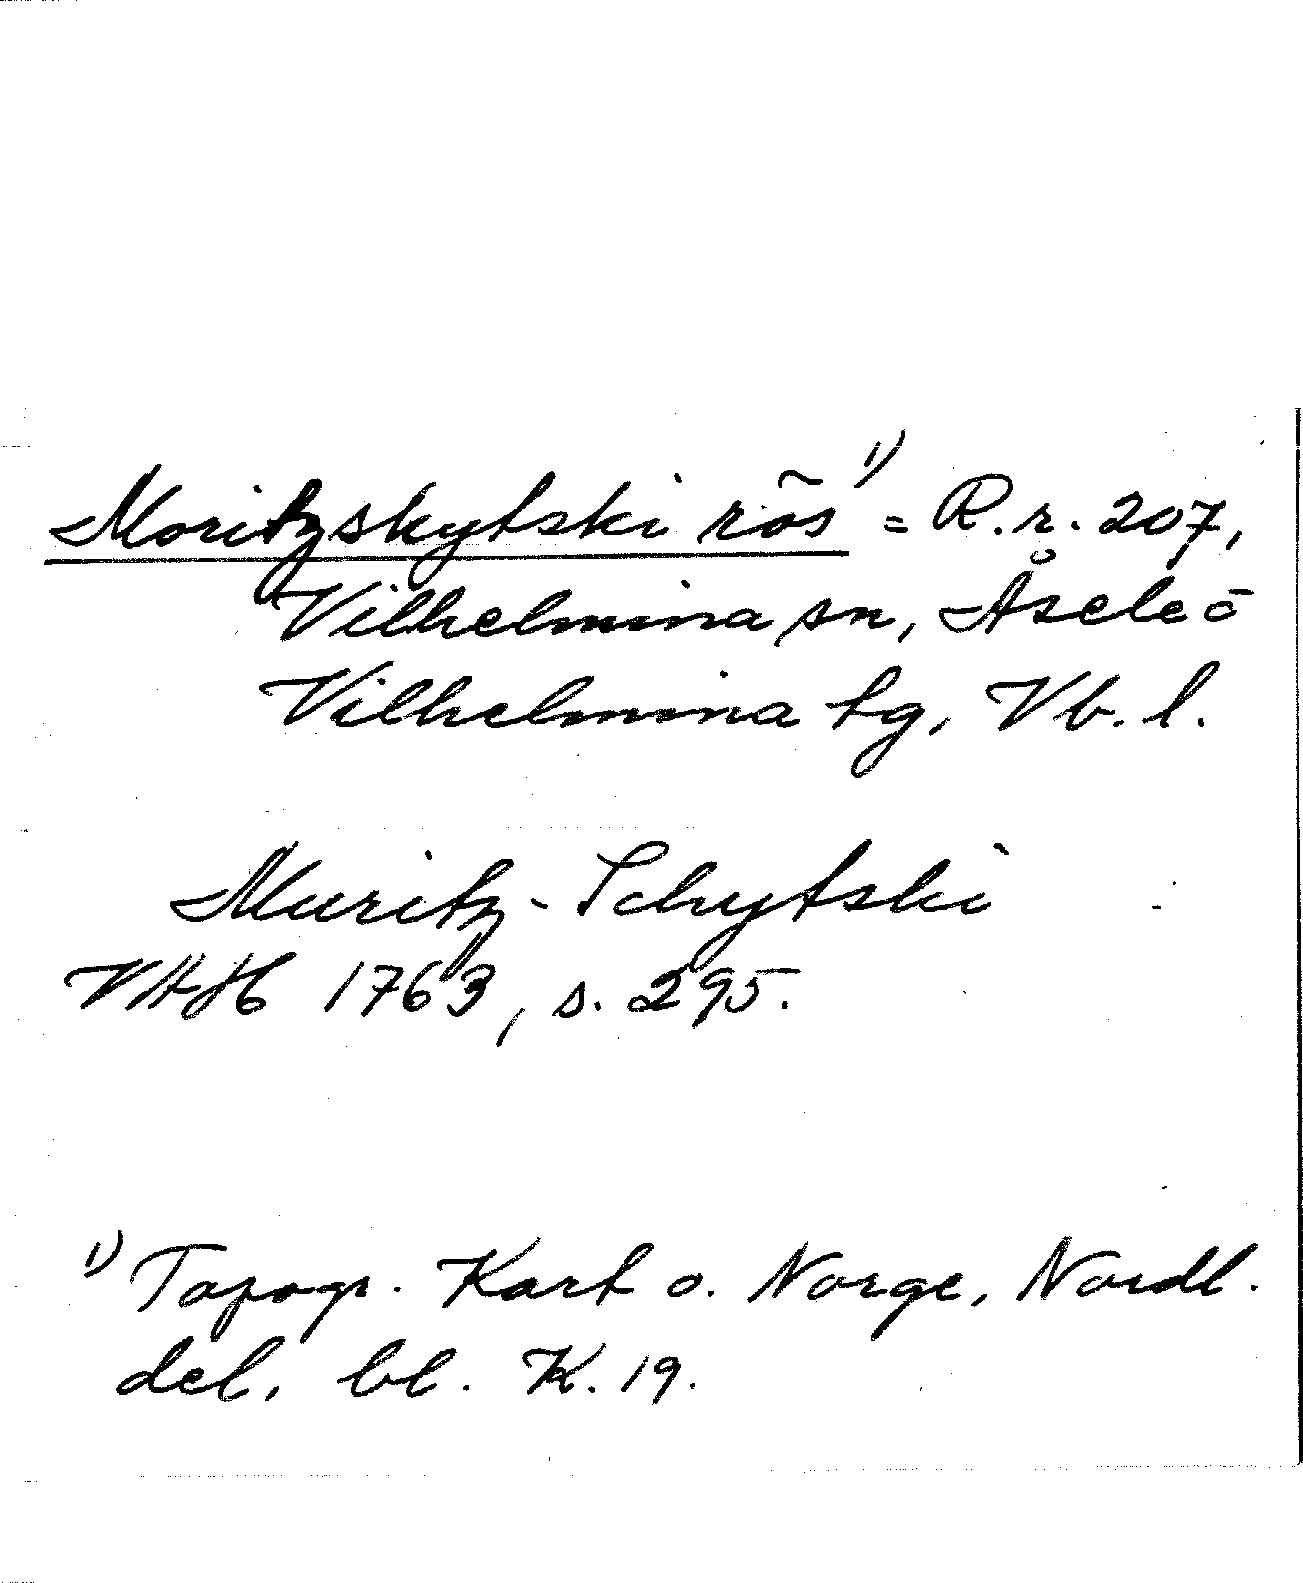 Moritzskytski rös ¹) = R.r. 207,
Vilhelmina sn, Åsele o
Vilhelmina tg, Vb. l.
Muritz-Schytski
VHH 1763, s. 295.
¹) Topogr. Kart o. Norge, Nordl.
del, bl. K. 19.